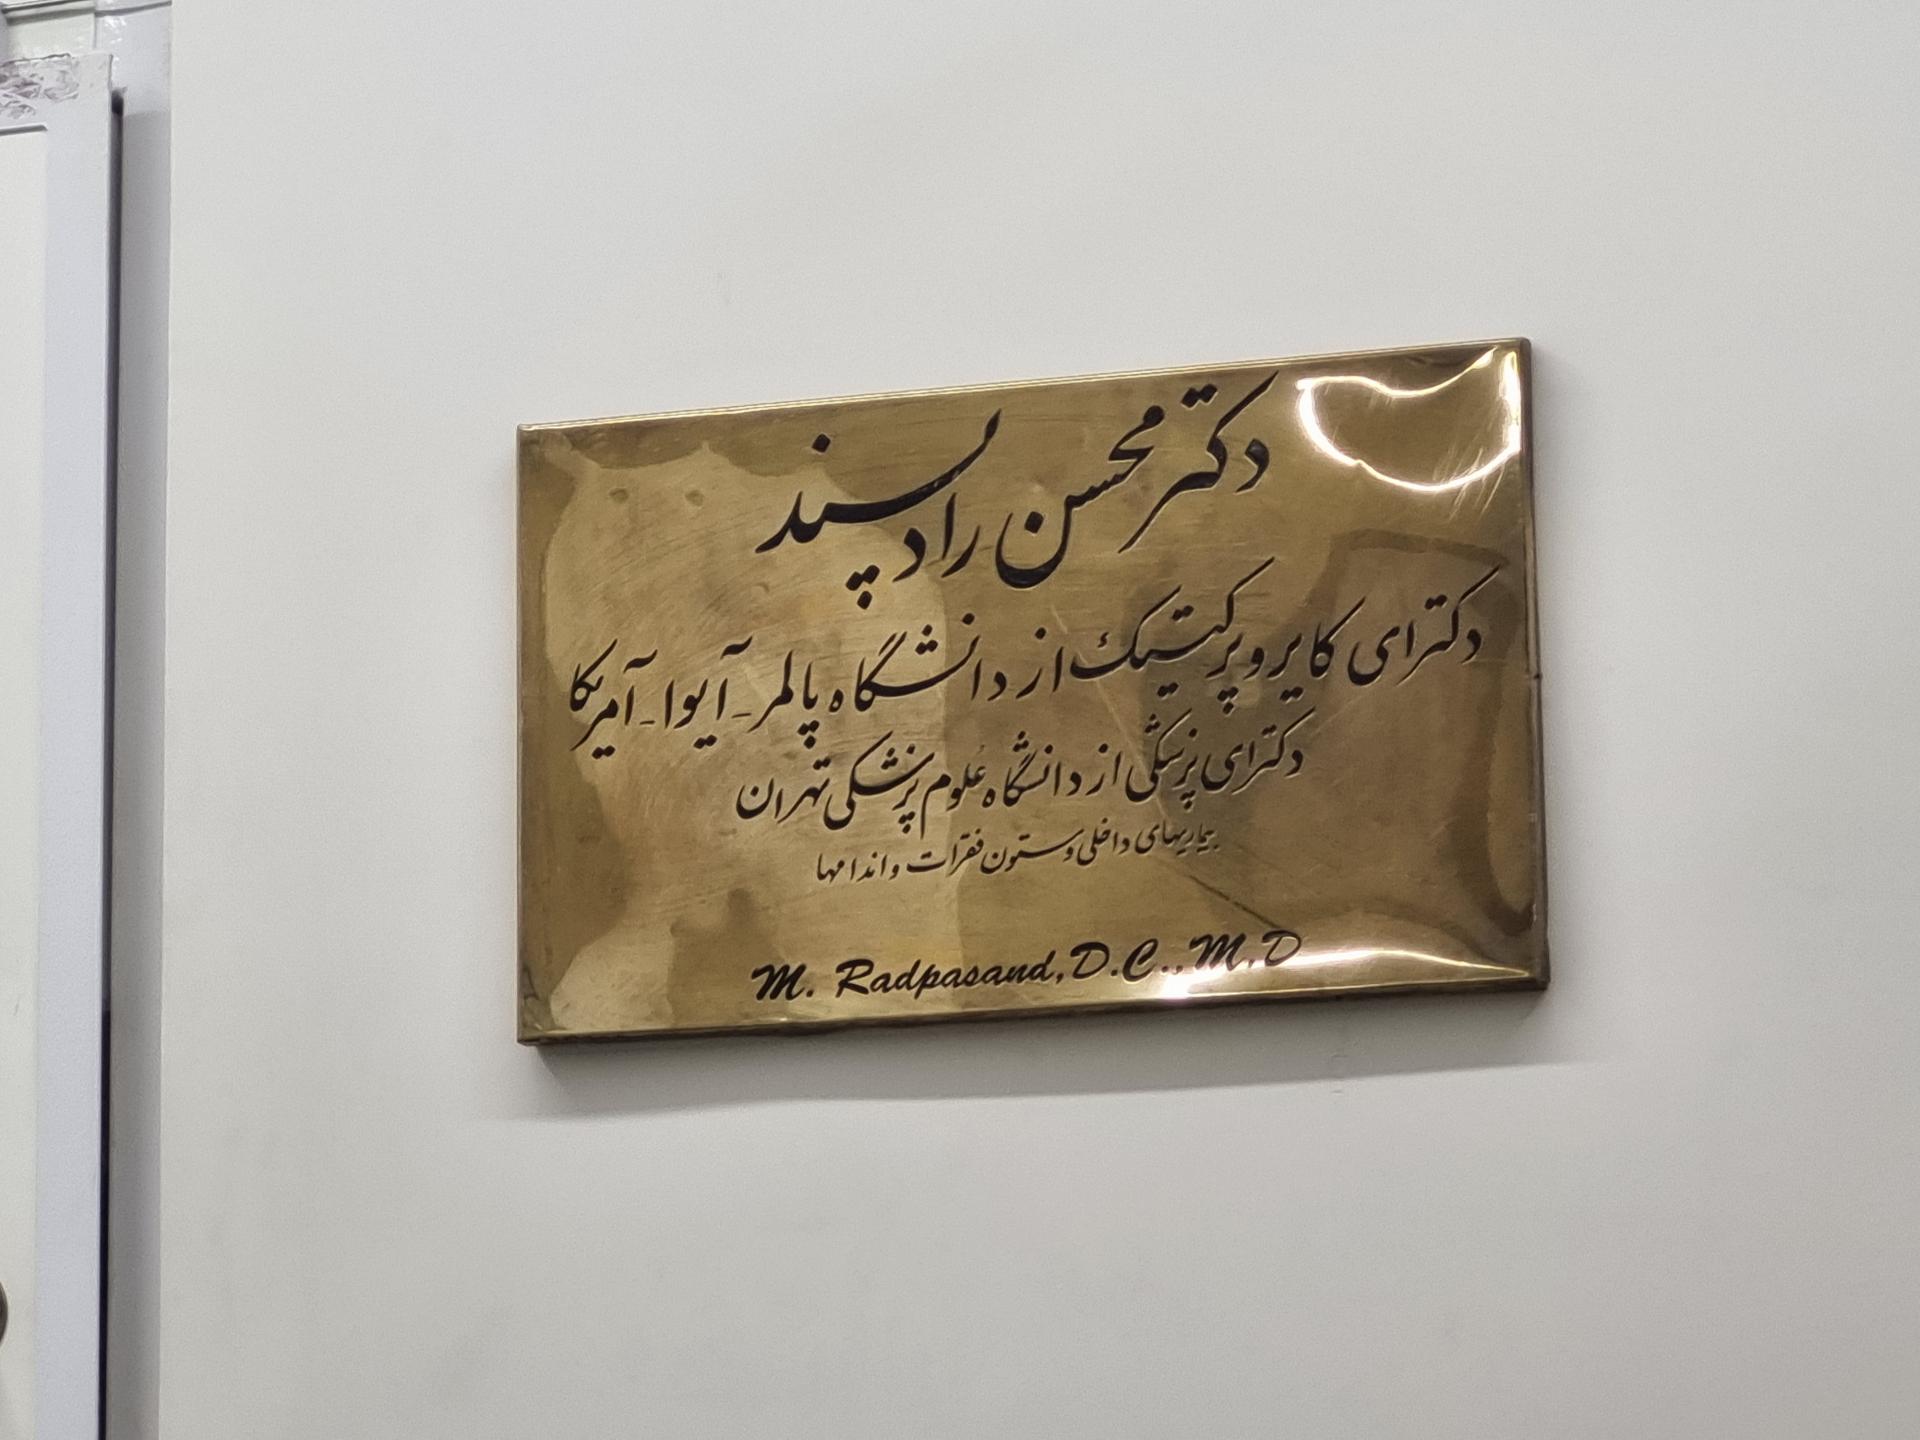 دکتر محسن رادپسند
دکترای کایروپرکتیک از دانشگاه پالمر - آیوا - آمریکا
دکترای پزشکی از دانشگاه علوم پزشکی تهران
بیماریهای داخلی و ستون فقرات و اندامها
M. Radpasand, D.C., M.D